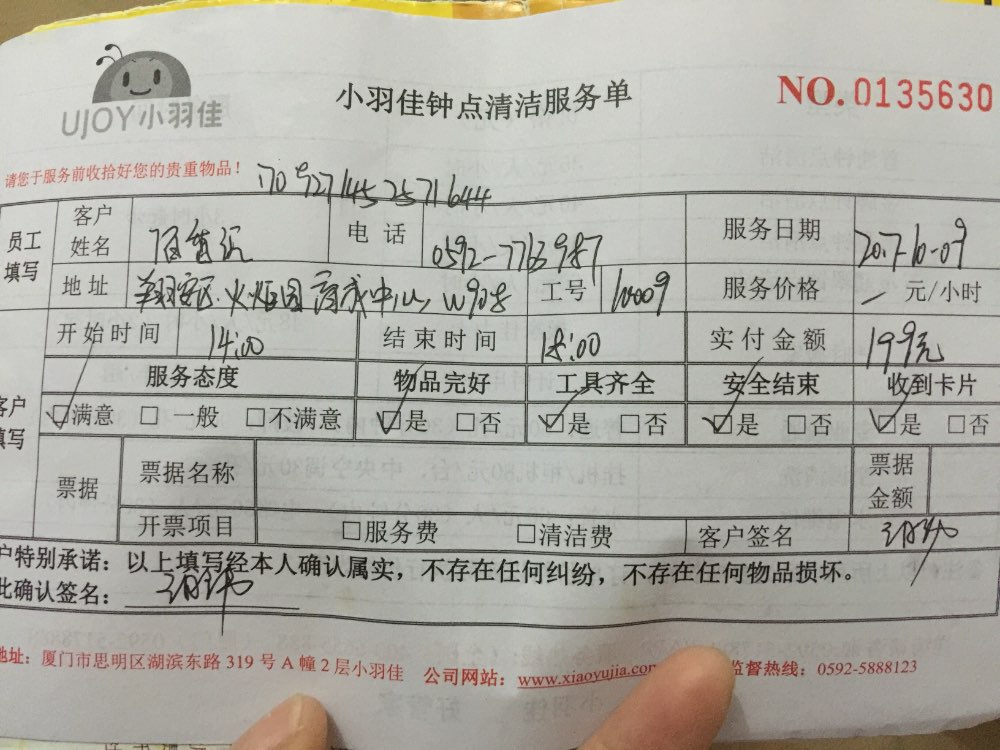 UJOY小羽佳
小羽佳钟点清洁服务单
NO. 0135630
请您于服务前收拾好您的贵重物品！
1709271452571644
员工填写 客户姓名 电话 0592-7763987 服务日期 2017-10-09
地址 翔安区火炬园商成中心W908 工号 10009 服务价格 元/小时
开始时间 14:00 结束时间 18:00 实付金额 199元
服务态度 物品完好 工具齐全 安全结束 收到卡片
客户填写 ☑满意 □一般 □不满意 ☑是 □否 ☑是 □否 ☑是 □否 ☑是 □否
票据 票据名称 票据金额
开票项目 □服务费 □清洁费 客户签名
户特别承诺：以上填写经本人确认属实，不存在任何纠纷，不存在任何物品损坏。
此确认签名：
地址：厦门市思明区湖滨东路319号A幢2层小羽佳 公司网站：www.xiaoyujia.com 监督热线：0592-5888123